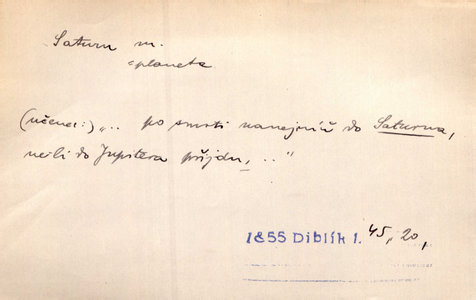 Saturn m.
= planeta
(učenec:) „.. po smrti nanejvíš do Saturna,
neřli do Jupitera přijdu, .."
1855 Diblík 1. 45, 20,